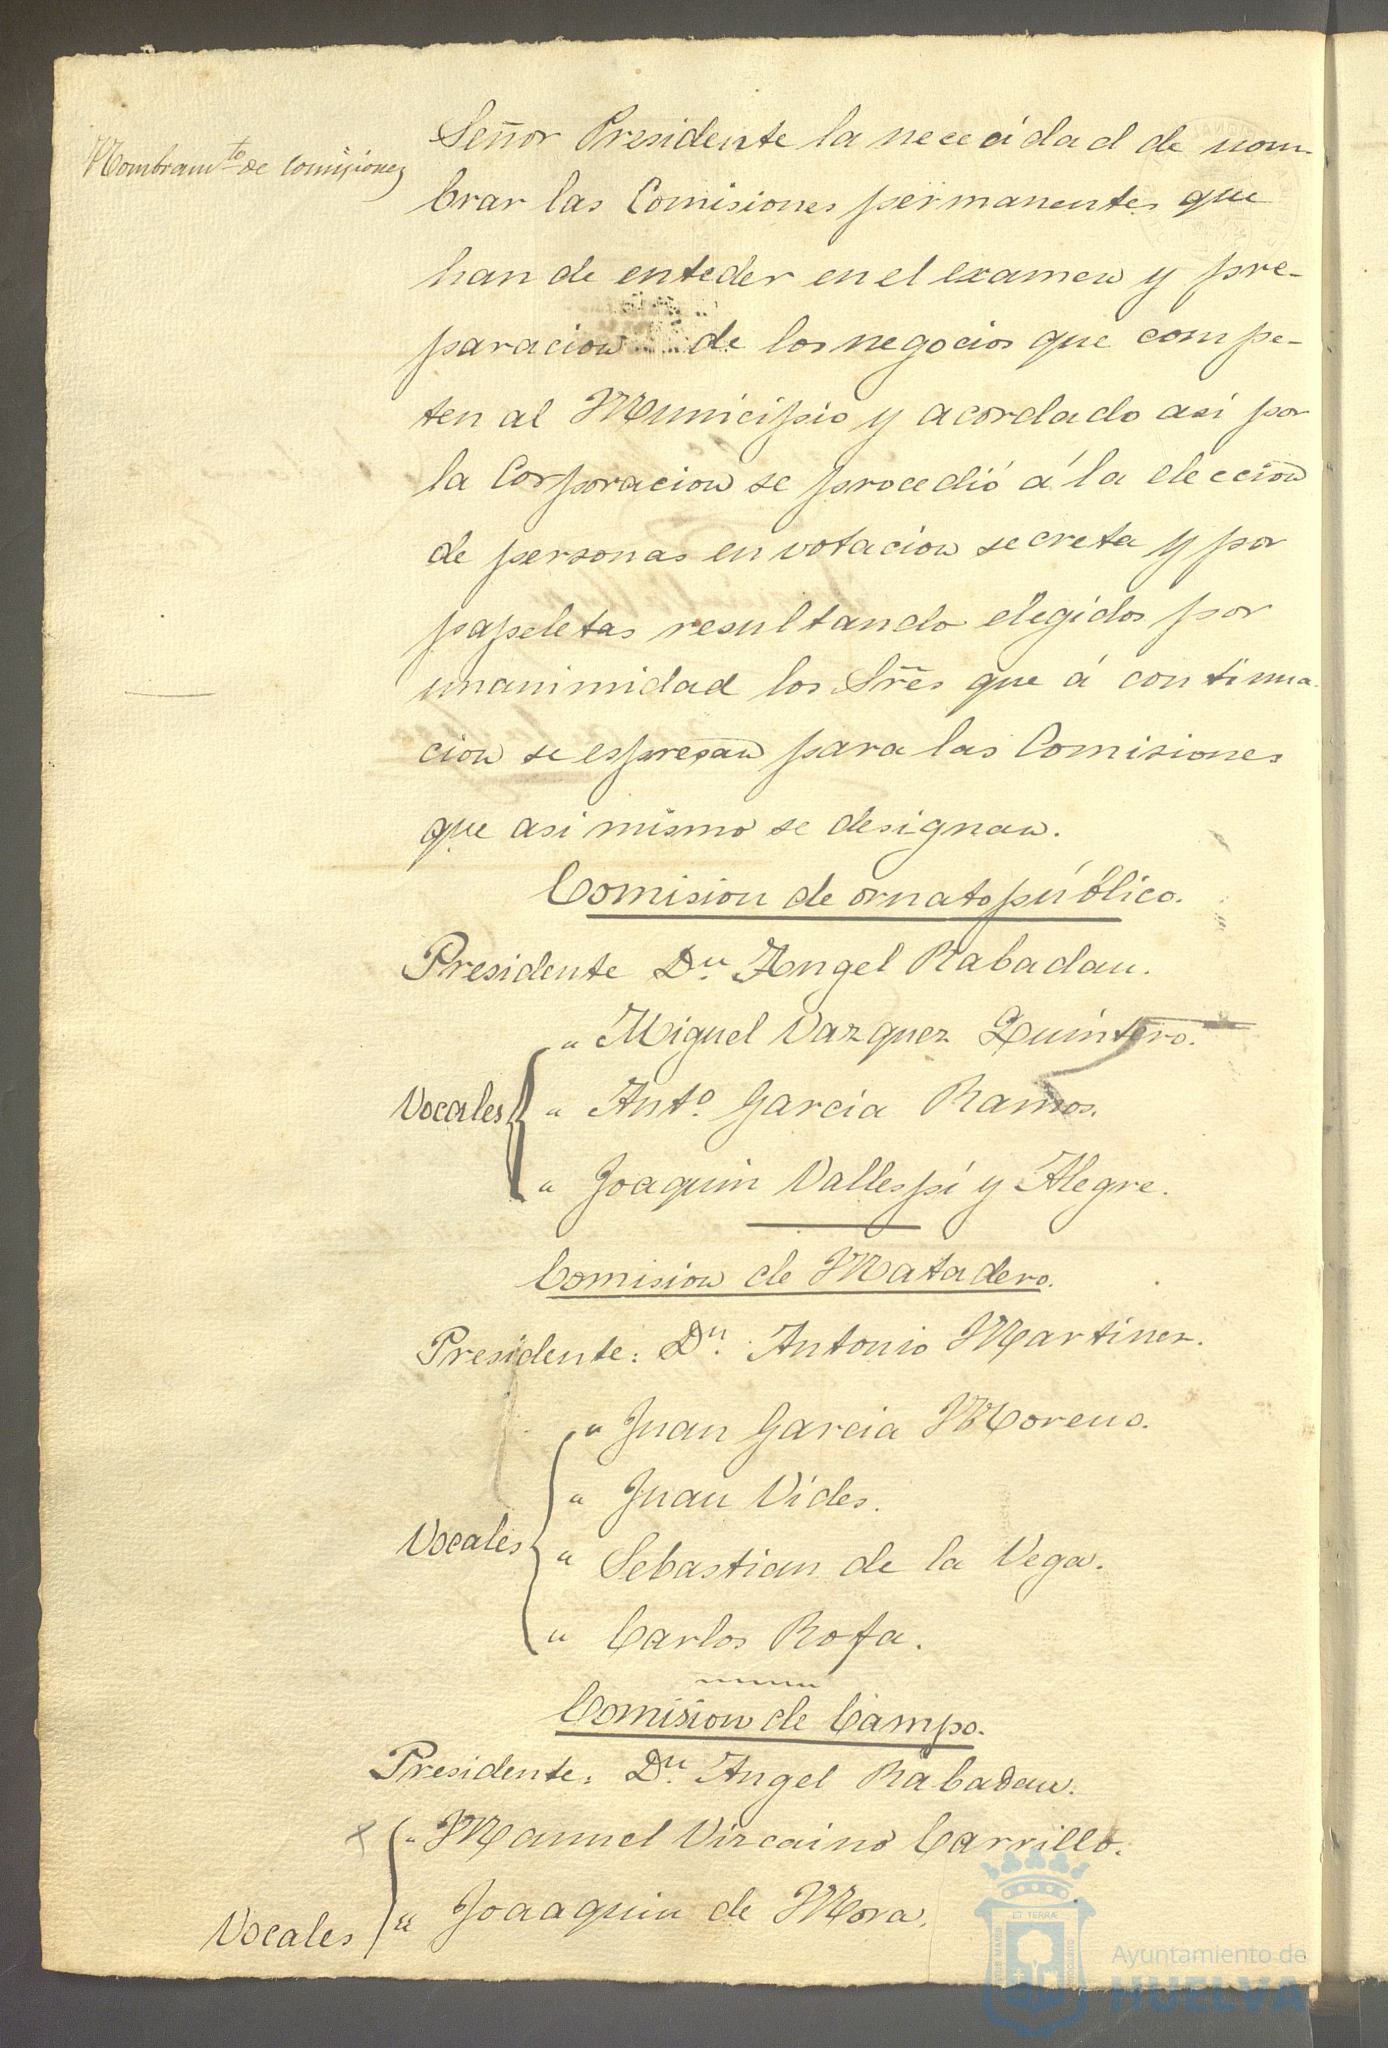 Nombramto de comisiones
Señor Presidente la nececidad de nom-
brar las Comisiones permanentes que
han de enteder en el examen y pre-
paracion de los negocios que compe-
ten al Municipio y acordado asi por
la Corporacion se procedió á la eleccion
de personas en votacion secreta y por
papeletas resultando elegidos por
unanimidad los Sres que á continua-
cion se espresan para las Comisiones
que asi mismo se designan.
Comision de ornato público.
Presidente Dn. Angel Rabadan.
" Miguel Vazquez Quintero.
Vocales " Anto. Garcia Ramos.
" Joaquin Vallespi y Alegre.
Comision de Matadero.
Presidente: Dn. Antonio Martinez.
" Juan Garcia Moreno.
" Juan Vides.
Vocales " Sebastian de la Vega.
" Carlos Rofa.
Comision de Campo.
Presidente: Dn. Angel Rabadan.
x " Manuel Vizcaino Carrillo.
Vocales " Joaaquin de Mora.
Ayuntamiento de
HUELVA